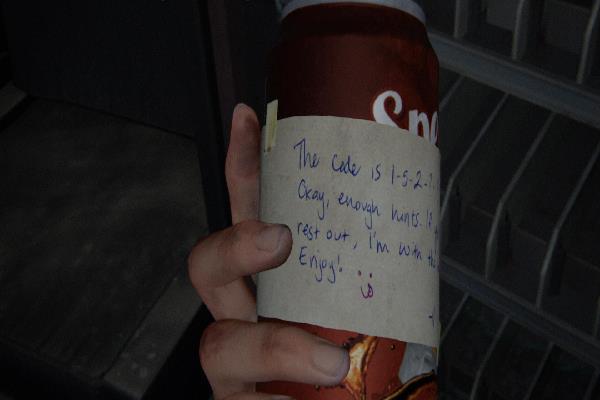 The code is 1-5-2-?
Okay, enough hints. If
rest out, I'm with the
Enjoy!